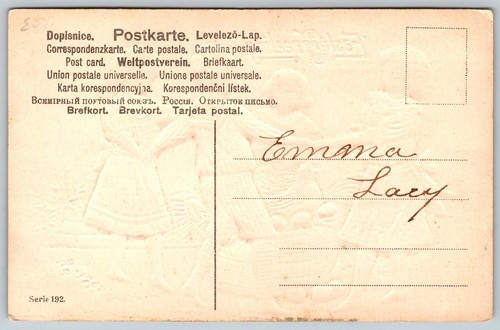 Dopisnice. Postkarte. Levelező-Lap.
Correspondenzkarte. Carte postale. Cartolina postale.
Post card. Weltpostverein. Briefkaart.
Union postale universelle. Unione postale universale.
Karta korespondencyjna. Korespondenční lístek.
Всемірный почтовый союзъ. Россія. Открытое письмо.
Brefkort. Brevkort. Tarjeta postal.
Emma
Lacy
Serie 192.